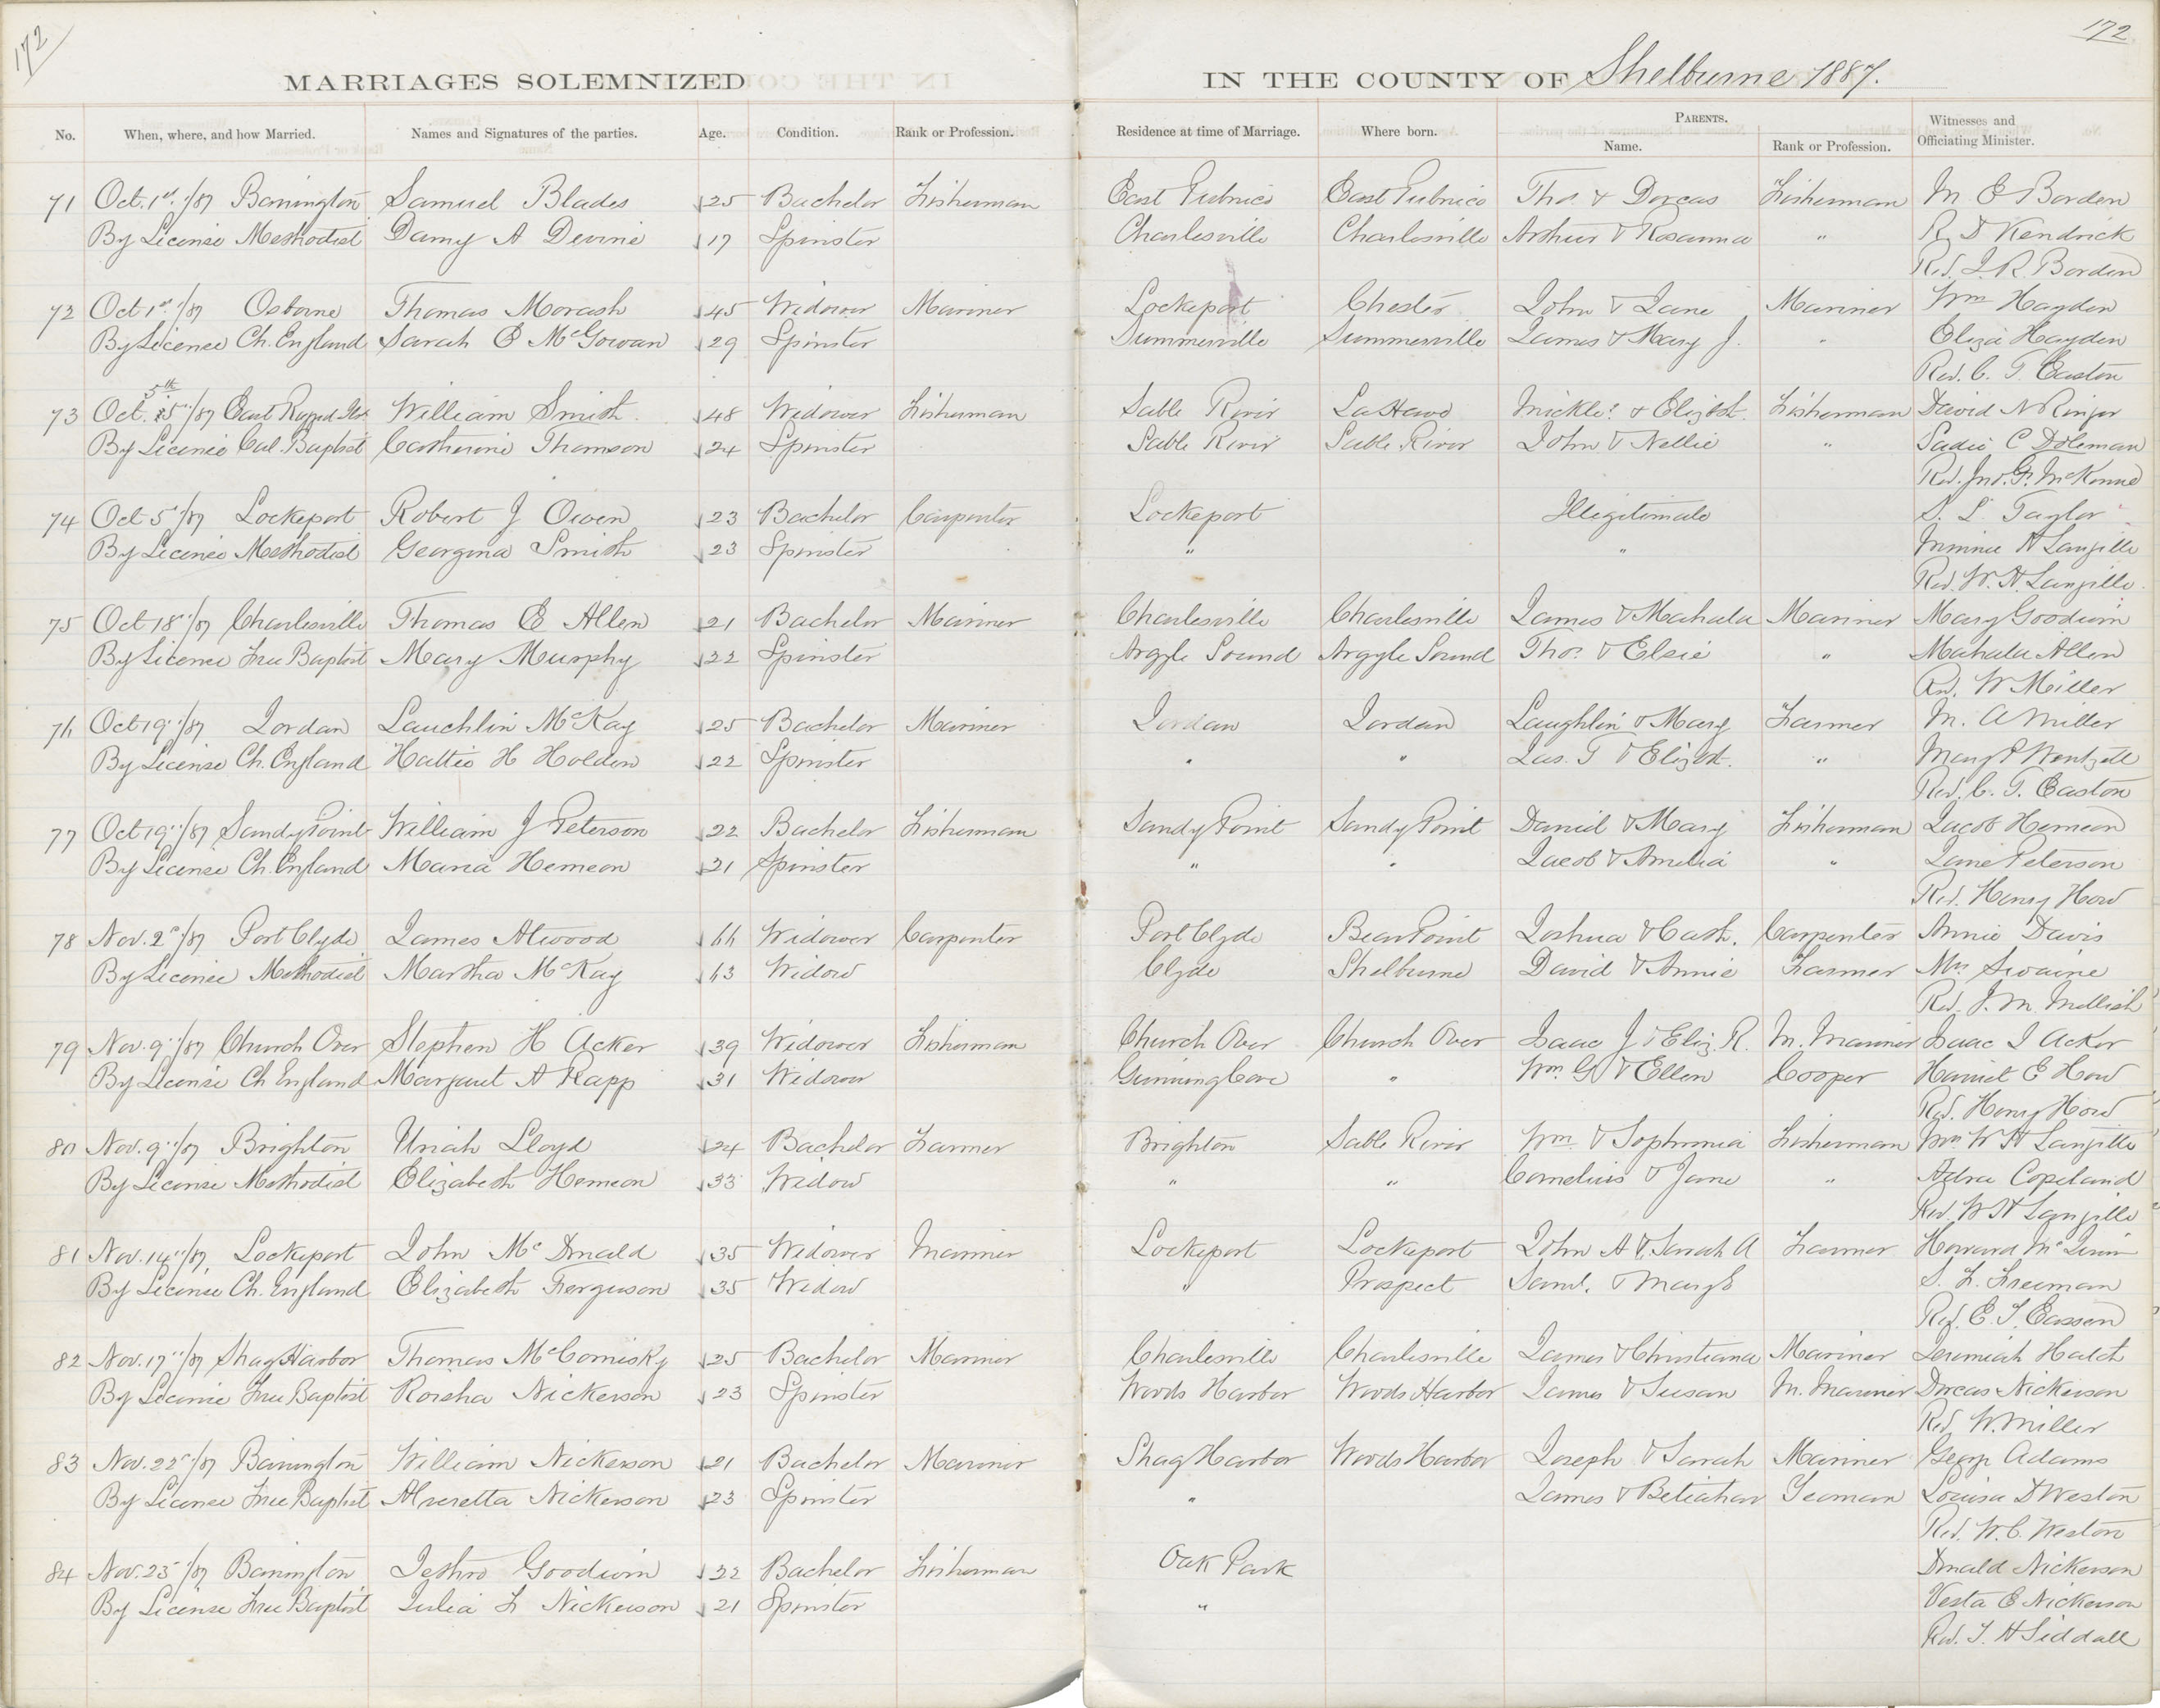 172
172
MARRIAGES SOLEMNIZED IN THE COUNTY OF Shelburne 1887.
No. When, where, and how Married. Names and Signatures of the parties. Age. Condition. Rank or Profession. Residence at time of Marriage. Where born. PARENTS. Name. Rank or Profession. Witnesses and Officiating Minister.
71 Oct. 1st /87 Barrington Samuel Blades 25 Bachelor Fisherman East Pubnico East Pubnico Thos. & Dorcas Fisherman M E Borden
By License Methodist Damy A Devine 17 Spinster Charlesville Charlesville Arthur & Rosanna " R D Kendrick
Rev. J. R. Borden
72 Oct 1st /87 Osborne Thomas Morash 45 Widower Mariner Lockeport Chester John & Jane Mariner Wm Hayden
By Licence Ch. England Sarah E McGowan 29 Spinster Summerville Summerville James & Mary J. " Eliza Hayden
Rev. C. T. Easton
5th
73 Oct. 15" /87 East Ragged Isl. William Smith 48 Widower Fisherman Sable River LaHave Mickle. & Elizbt. Fisherman David N Ringer
By Licence Cal. Baptist Catherine Thomson 24 Spinster Sable River Sable River John & Nellie " Sadie C Doleman
Rev. Jno. G.
74 Oct 5" /87 Lockeport Robert J Owen 23 Bachelor Carpenter Lockeport Illegitimate S. L. Taylor
By Licence Methodist Georgina Smith 23 Spinster " " Minnie A Langille
Rev. W. A. Langille.
75 Oct 18" /87 Charlesville Thomas E Allen 21 Bachelor Mariner Charlesville Charlesville James & Mahala Mariner Mary Goodwin
By Licence Free Baptist Mary Murphy 22 Spinster Argyle Sound Argyle Sound Thos. & Elsie " Mahala Allen
Rev. W Miller
76 Oct 19" /87 Jordan Lauchlin McKay 25 Bachelor Mariner Jordan Jordan Laughlin & Mary Farmer M. A Miller
By License Ch. England Hattie H Holden 22 Spinster " " Jas. G & Elizbt. " Mary P Wentzell
Rev. C. T. Easton
77 Oct 19" /87 Sandy Point William J Peterson 22 Bachelor Fisherman Sandy Point Sandy Point Daniel & Mary Fisherman Jacob Hemeon
By License Ch. England Maria Hemeon 21 Spinster " " Jacob & Amelia " Jane Peterson
Rev. Henry How
78 Nov. 2" /87 Port Clyde James Atwood 66 Widower Carpenter Port Clyde Bear Point Joshua & Cath. Carpenter Annie Davis
By Licence Methodist Martha McKay 63 Widow Clyde Shelburne David & Annie Farmer Mrs Swaine
Rev. J. M. Mellish
79 Nov. 9" /87 Church Over Stephen H Acker 39 Widower Fisherman Church Over Church Over Isaac J & Eliz. R. M. Mariner Isaac I Acker
By License Ch England Margaret A Rapp 31 Widower Gunning Cove " Wm. G & Ellen Cooper Harriet E How
Rev. Henry How
80 Nov. 9" /87 Brighton Uriah Lloyd 24 Bachelor Farmer Brighton Sable River Wm. & Sophronia Fisherman Mrs W A Langille
By License Methodist Elizabeth Hemeon 33 Widow " " Cornelius & Jane " Adra Copeland
Rev. W A Langille
81 Nov. 14" /87 Lockeport John McDonald 35 Widower Mariner Lockeport Lockeport John A & Sarah A Farmer Howard
By Licence Ch. England Elizabeth Ferguson 35 Widow " Prospect Saml. & Margt S. L. Freeman
Rev. E. T. Easson
82 Nov. 17" /87 Shag Harbor Thomas McComisky 25 Bachelor Mariner Charlesville Charlesville James & Christiana Mariner Jeremiah Hatch
By Licence Free Baptist Roisha Nickerson 23 Spinster Woods Harbor Woods Harbor James & Susan M. Mariner Dorcas Nickerson
Rev W. Miller
83 Nov. 22" /87 Barrington William Nickerson 21 Bachelor Mariner Shag Harbor Woods Harbor Joseph & Sarah Mariner George Adams
By License Free Baptist Alveretta Nickerson 23 Spinster " James & Betiahar Yeoman Louisa D Weston
Rev. W. C. Weston
84 Nov. 23" /87 Barrington Jethro Goodwin 22 Bachelor Fisherman Oak Park Donald Nickerson
By License Free Baptist Julia F Nickerson 21 Spinster " Vesta E Nickerson
Rev. T. H Siddall